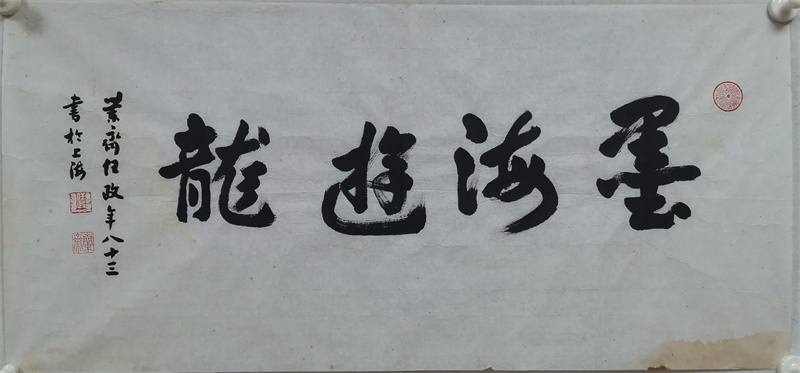 墨海遊龍
業齋任政年八十三
書於上海